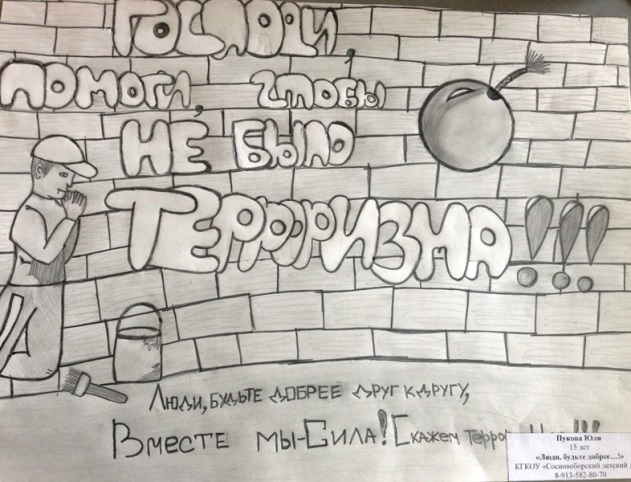 ГОСПОДИ,
ПОМОГИ, ЧТОБЫ
НЕ БЫЛО
ТЕРРОРИЗМА!!!
ЛЮДИ, БУДЬТЕ ДОБРЕЕ ДРУГ К ДРУГУ,
ВМЕСТЕ МЫ-СИЛА! СКАЖЕМ
Пукова Юля
15 лет
«Люди, будьте добрее…!»
КГКОУ «Сосновоборский детский
8-913-582-80-70